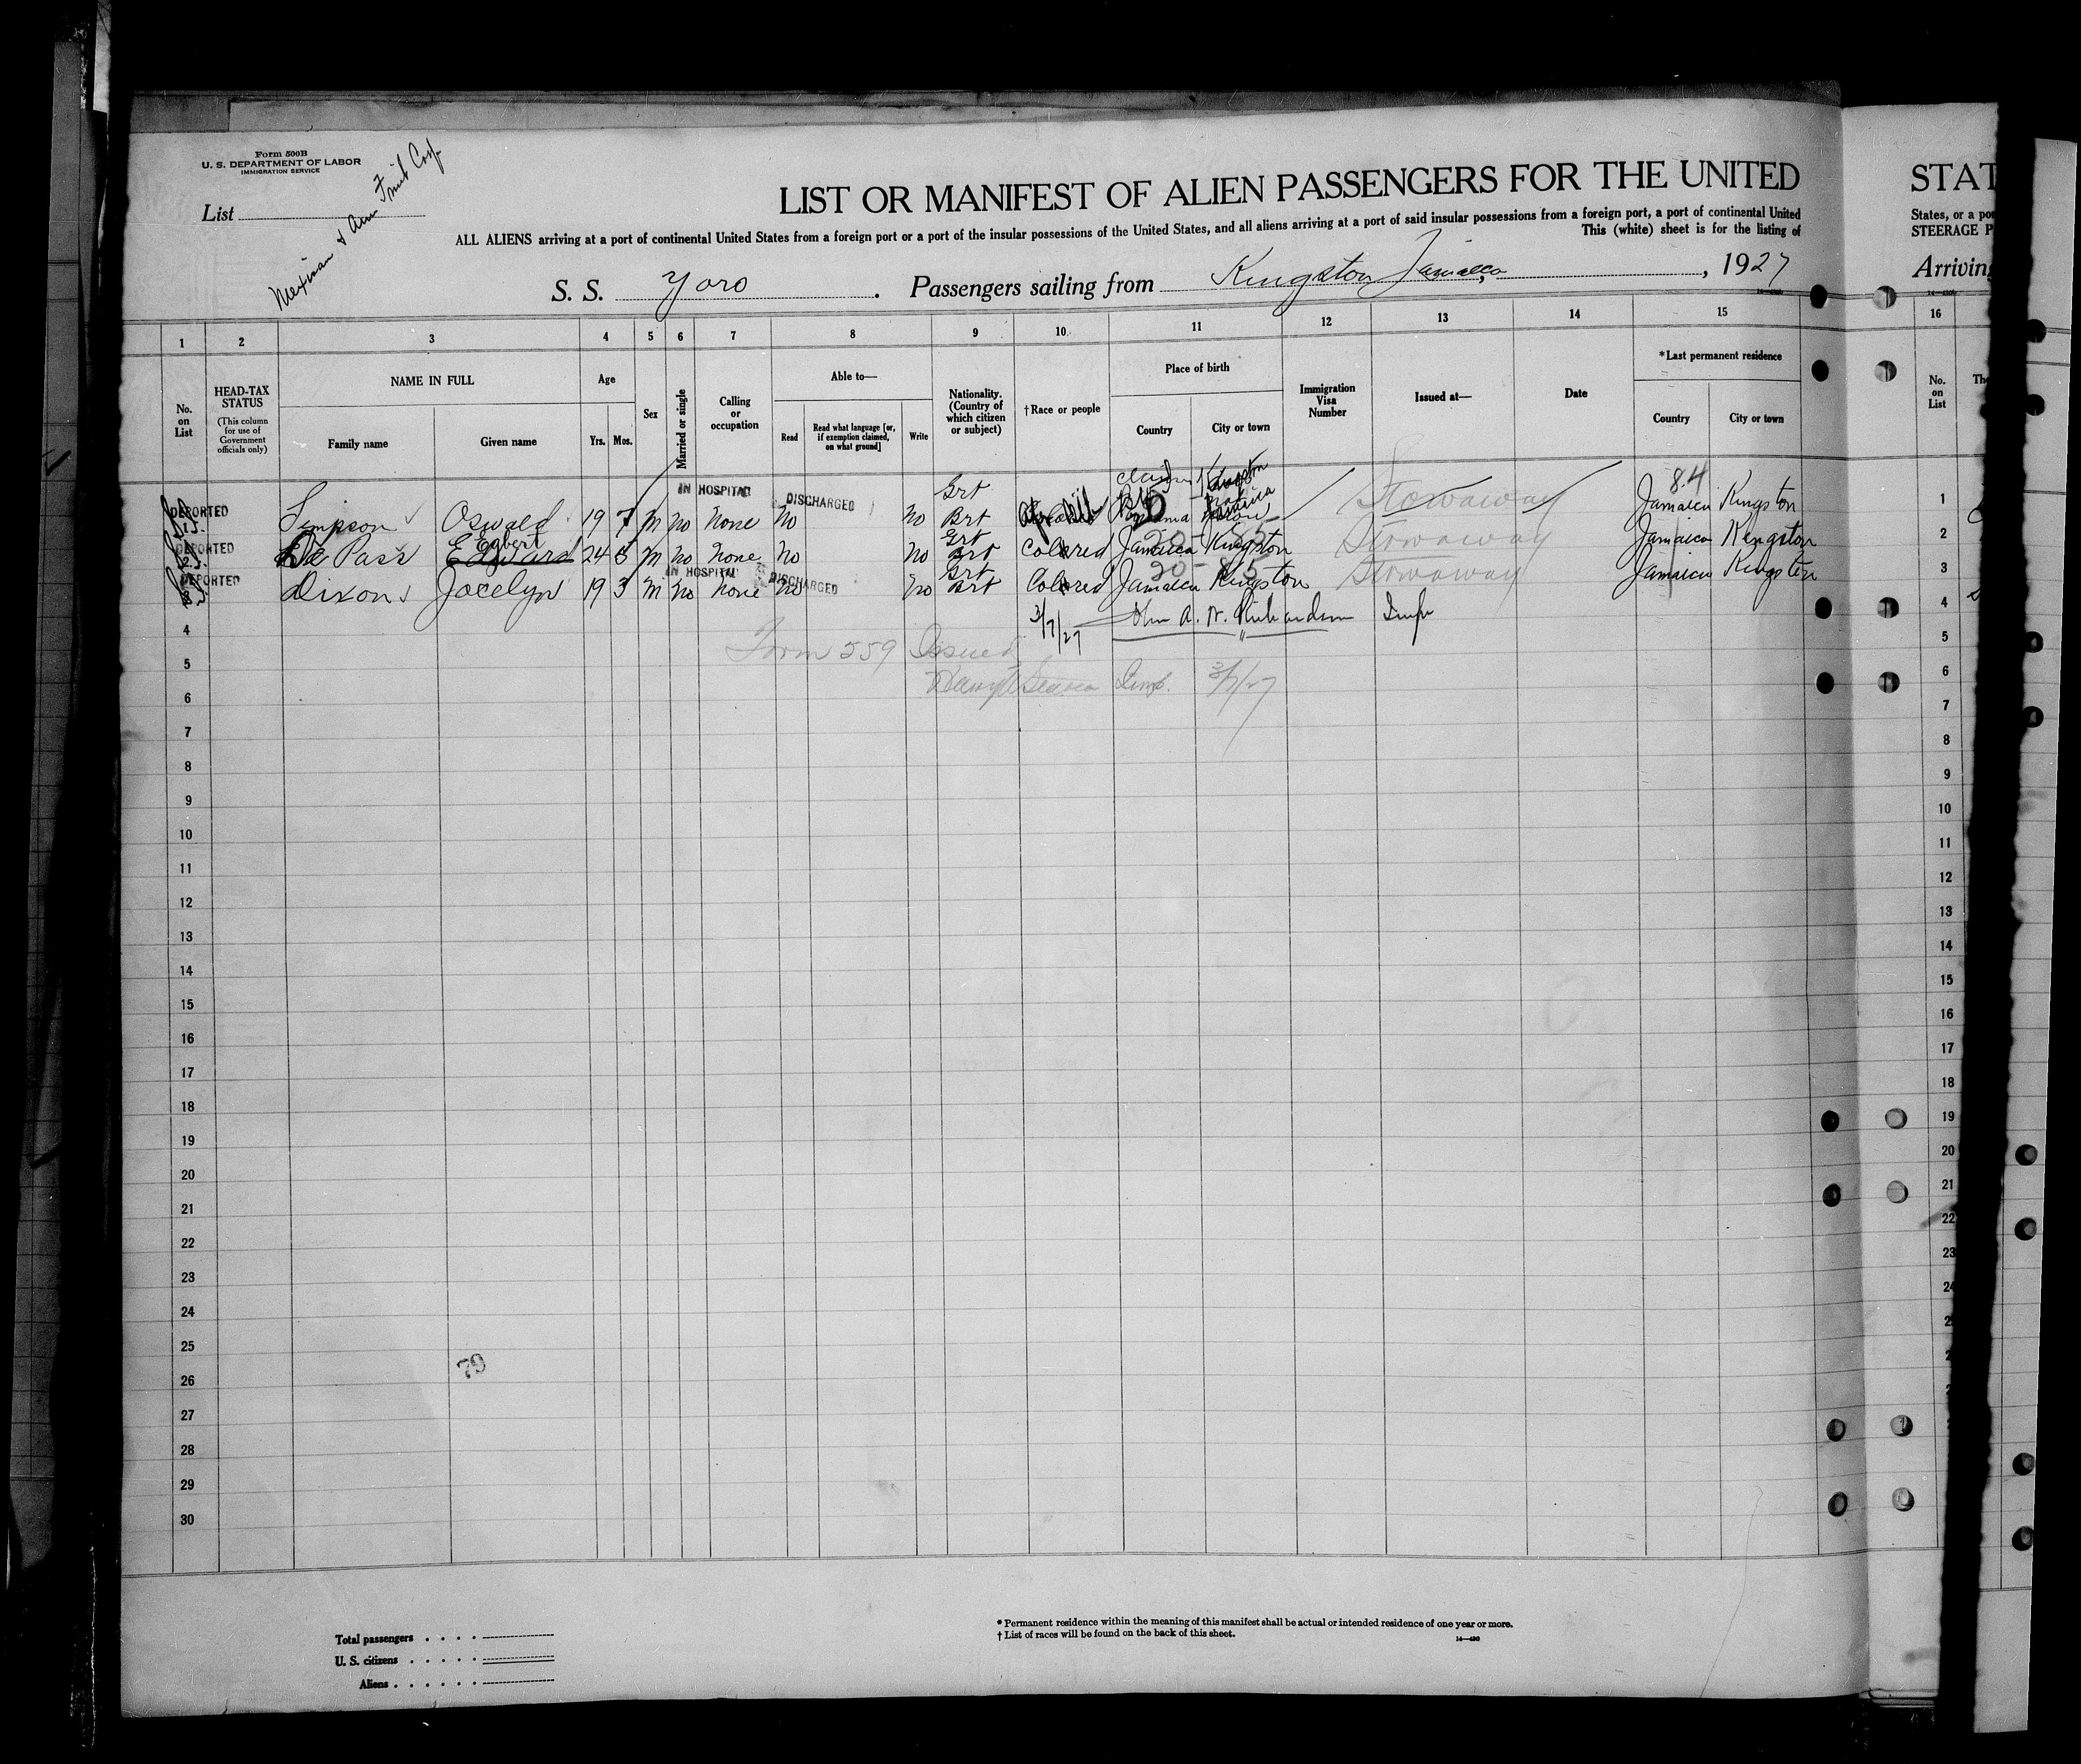 Form 500B
U. S. DEPARTMENT OF LABOR
IMMIGRATION SERVICE
List
Mexican & Am Fruit Corp.
LIST OR MANIFEST OF ALIEN PASSENGERS FOR THE UNITED
ALL ALIENS arriving at a port of continental United States from a foreign port or a port of the insular possessions of the United States, and all aliens arriving at a port of said insular possessions from a foreign port, a port of continental United
This (white) sheet is for the listing of
S. S. Yoro . Passengers sailing from Kingston Jamaica, , 1927
STAT
States, or a po
STEERAGE P
Arriving
1 2 3 4 5 6 7 8 9 10 11 12 13 14 15 16
No. on List
HEAD-TAX STATUS
(This column for use of Government officials only)
NAME IN FULL
Family name Given name
Age
Yrs. Mos.
Sex
Married or single
Calling or occupation
Able to—
Read
Read what language [or, if exemption claimed, on what ground]
Write
Nationality. (Country of which citizen or subject)
†Race or people
Place of birth
Country City or town
Immigration Visa Number
Issued at—
Date
*Last permanent residence
Country City or town
No. on List
IN HOSPITAL DISCHARGED Grt 84
DEPORTED Simpson Oswald 19 7 m no None No No Brt Panama Stowaway Jamaica Kingston 1
Egbert Grt
DEPORTED De Pass Edward 24 5 m no None No No Brt Colored Jamaica Kingston Stowaway Jamaica Kingston 2
IN HOSPITAL DISCHARGED Grt 20-85
DEPORTED Dixon Jocelyn 19 3 m no None No No Brt Colored Jamaica Kingston Stowaway Jamaica Kingston 3
3/7/27 A. W. Richardson Insp
4 4
Form 559 Issued
5 5
Insp. 3/7/27
6 6
7 7
8 8
9 9
10 10
11 11
12 12
13 13
14 14
15 15
16 16
17 17
18 18
19 19
20 20
21 21
22 22
23 23
24 24
25
79
26
27
28
29
30
Total passengers
U. S. citizens
Aliens
* Permanent residence within the meaning of this manifest shall be actual or intended residence of one year or more.
† List of races will be found on the back of this sheet.
14—430